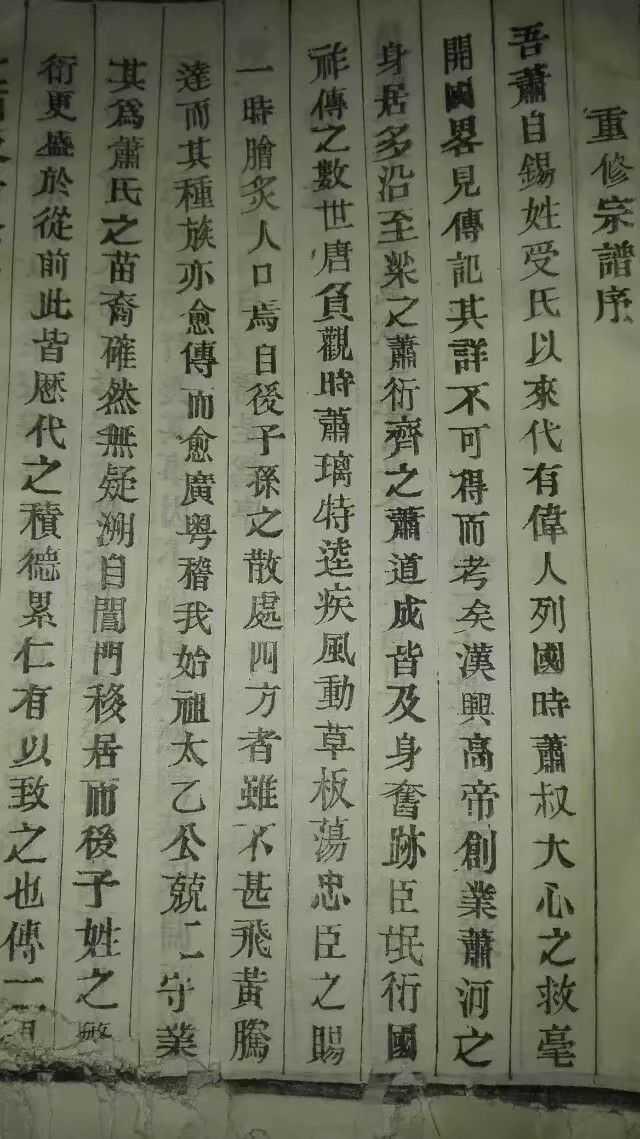 重修宗譜序
吾蕭自錫姓受氏以來代有偉人列國時蕭叔大心之救亳
開國畧見傳記其詳不可得而考矣漢興高帝創業蕭河之
身居多沿至梁之蕭衍齊之蕭道成皆及身奮跡臣氓衍國
祚傳之數世唐負觀時蕭璃特逵疾風動草板蕩忠臣之賜
一時膾炙人口焉自後子孫之散處四方者雖不甚飛黃騰
達而其種族亦愈傳而愈廣粤稽我始祖太乙公兢二守業
其爲蕭氏之苗裔確然無疑溯自閶門移居而後子姓之
衍更盛於從前此皆歷代之積德累仁有以致之也傳二